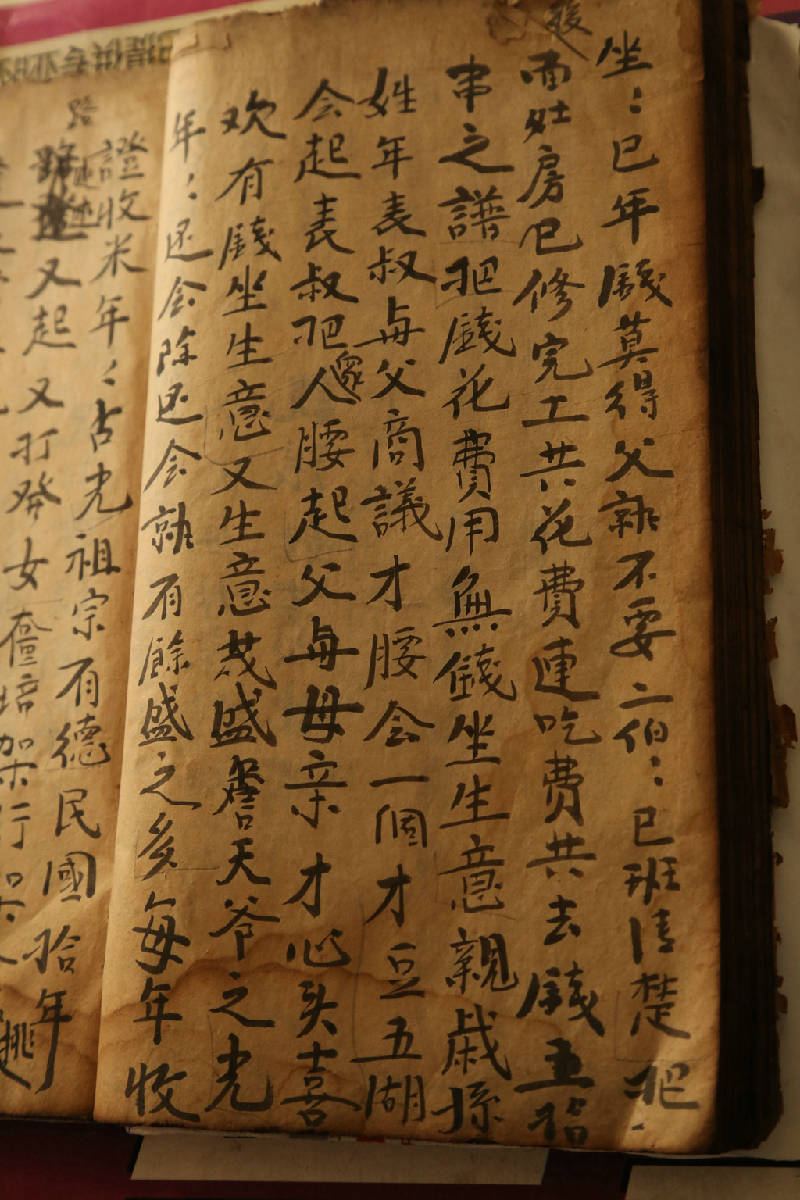 坐：已年錢莫得父親不要二伯：已班清楚把
後
面灶房已修完工共花費連吃費共去錢五拾
串之譜把錢花費用無錢坐生意親戚孫
姓年表叔每父商議才腰会一個才豆五湖
会起表叔把人眾腰起父每母亲才心头喜
欢有錢坐生意又生意茂盛詹天爷之光
年：还会除还会親有餘盛之多每年收
證收米年：古光祖宗有德民國拾年
路
又起又打發女